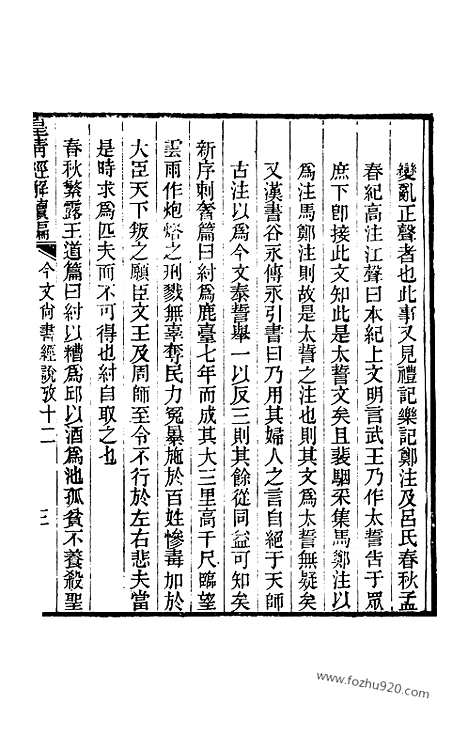 變亂正聲者也此事又見禮記樂記鄭注及呂氏春秋孟
春紀高注江聲曰本紀上文明言武王乃作太誓告于眾
庶下卽接此文知此是太誓文矣且裴駰采集馬鄭注以
爲注馬鄭注則故是太誓之注也則其文爲太誓無疑矣
又漢書谷永傳永引書曰乃用其婦人之言自絕于天師
古注以爲今文泰誓舉一以反三則其餘從同益可知矣
新序刺奢篇曰紂爲鹿臺七年而成其大三里高千尺臨望
雲雨作炮烙之刑戮無辜奪民力冤暴施於百姓慘毒加於
大臣天下叛之願臣文王及周師至令不行於左右悲夫當
是時求爲匹夫而不可得也紂自取之也
春秋繁露王道篇曰紂以糟爲邱以酒爲池孤貧不養殺聖
皇清經解續編
今文尚書經說攷十二
三
www.fozhu920.com